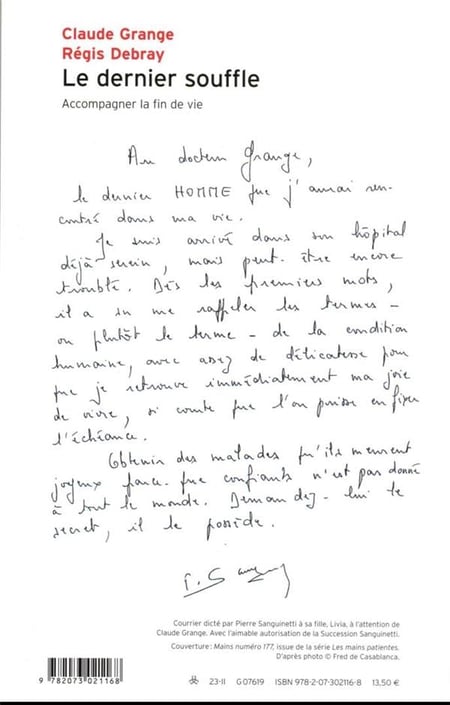 Claude Grange
Régis Debray
Le dernier souffle
Accompagner la fin de vie
Au docteur Grange,
le dernier HOMME que j'aurai ren-
contré dans ma vie.
Je suis arrivé dans son hôpital
déjà serein, mais peut-être encore
troublé. Dès les premiers mots,
il a su me rappeler les termes -
ou plutôt le terme - de la condition
humaine, avec assez de délicatesse pour
que je retrouve immédiatement ma joie
de vivre, si courte que l'on puisse en fixer
l'échéance.
Obtenir des malades qu'ils meurent
joyeux parce que confiants n'est pas donné
à tout le monde. Demandez-lui le
secret, il le possède.
P. Sanguinetti
Courrier dicté par Pierre Sanguinetti à sa fille, Livia, à l'attention de
Claude Grange. Avec l'aimable autorisation de la Succession Sanguinetti.
Couverture : Mains numéro 177, issue de la série Les mains patientes.
D'après photo © Fred de Casablanca.
9 782073 021168
23-II G07619 ISBN 978-2-07-302116-8 13,50 €